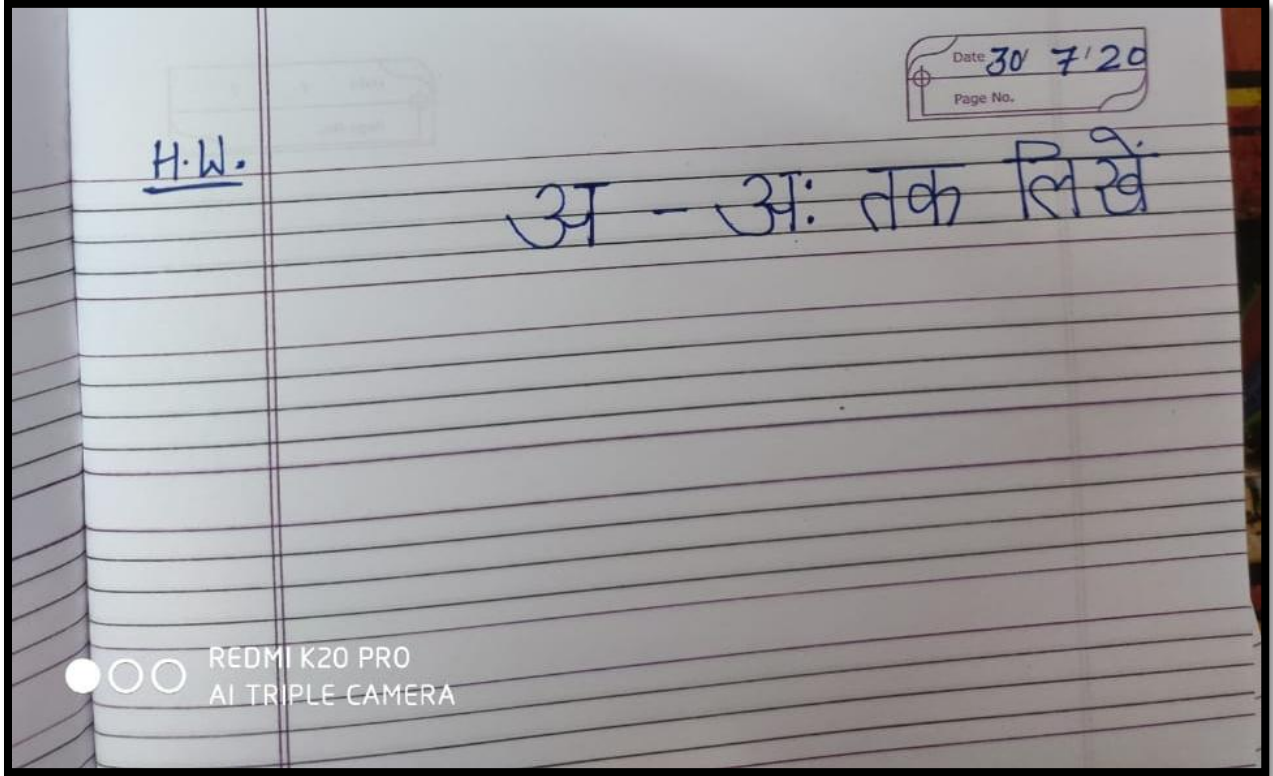 Date 30 7'20
Page No.
H.W.
अ - अः तक लिखें
REDMI K20 PRO
AI TRIPLE CAMERA